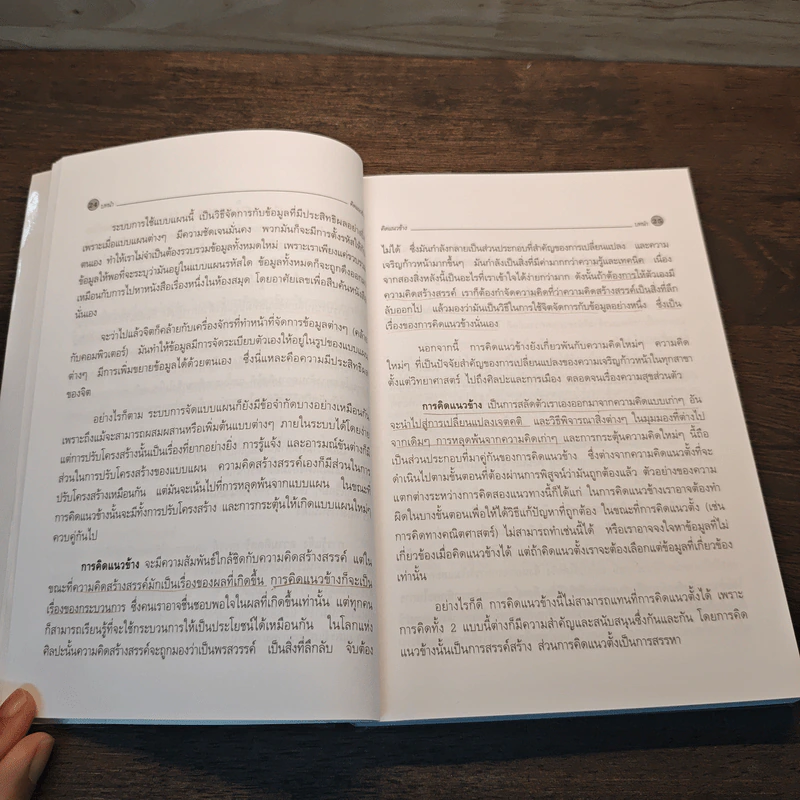 24 บทนำ
ระบบการใช้แบบแผนนี้ เป็นวิธีจัดการกับข้อมูลที่มีประสิทธิผลอย่าง
เพราะเมื่อแบบแผนต่างๆ มีความชัดเจนมั่นคง พวกมันก็จะมีการตั้งรหัสให้
ตนเอง ทำให้เราไม่จำเป็นต้องรวบรวมข้อมูลทั้งหมดใหม่ เพราะเราเพียงแค่รวบรวม
ข้อมูลให้พอที่จะระบุว่ามันอยู่ในแบบแผนรหัสใด ข้อมูลทั้งหมดก็จะถูกดึงออกมา
เหมือนกับการไปหาหนังสือเรื่องหนึ่งในห้องสมุด โดยอาศัยเลขเพื่อสืบค้นหนังสือ
นั่นเอง
จะว่าไปแล้วจิตก็คล้ายกับเครื่องจักรที่ทำหน้าที่จัดการข้อมูลต่างๆ (คล้าย
กับคอมพิวเตอร์) มันทำให้ข้อมูลมีการจัดระเบียบตัวเองให้อยู่ในรูปของแบบแผน
ต่างๆ มีการเพิ่มขยายข้อมูลได้ด้วยตนเอง ซึ่งนี่แหละคือความมีประสิทธิผล
ของจิต
อย่างไรก็ตาม ระบบการจัดแบบแผนก็ยังมีข้อจำกัดบางอย่างเหมือนกัน
เพราะถึงแม้จะสามารถผสมผสานหรือเพิ่มต้นแบบต่างๆ ภายในระบบได้โดยง่าย
แต่การปรับโครงสร้างนั้นเป็นเรื่องที่ยากอย่างยิ่ง การรู้แจ้ง และอารมณ์ขันต่างก็มี
ส่วนในการปรับโครงสร้างของแบบแผน ความคิดสร้างสรรค์เองก็มีส่วนในการ
ปรับโครงสร้างเหมือนกัน แต่มันจะเน้นไปที่การหลุดพ้นจากแบบแผน ในขณะที่
การคิดแนวข้างนั้นจะมีทั้งการปรับโครงสร้าง และการกระตุ้นให้เกิดแบบแผนใหม่ๆ
ควบคู่กันไป
การคิดแนวข้าง จะมีความสัมพันธ์ใกล้ชิดกับความคิดสร้างสรรค์ แต่ใน
ขณะที่ความคิดสร้างสรรค์มักเป็นเรื่องของผลที่เกิดขึ้น การคิดแนวข้างก็จะเป็น
เรื่องของกระบวนการ ซึ่งคนเราอาจชื่นชอบพอใจในผลที่เกิดขึ้นเท่านั้น แต่ทุกคน
ก็สามารถเรียนรู้ที่จะใช้กระบวนการให้เป็นประโยชน์ได้เหมือนกัน ในโลกแห่ง
ศิลปะนั้นความคิดสร้างสรรค์จะถูกมองว่าเป็นพรสวรรค์ เป็นสิ่งที่ลึกลับ จับต้อง
คิดแนวข้าง บทนำ 25
ไม่ได้ ซึ่งมันกำลังกลายเป็นส่วนประกอบที่สำคัญของการเปลี่ยนแปลง และความ
เจริญก้าวหน้ามากขึ้นๆ มันกำลังเป็นสิ่งที่มีค่ามากกว่าความรู้และเทคนิค เนื่อง
จากสองสิ่งหลังนี้เป็นอะไรที่เราเข้าใจได้ง่ายกว่ามาก ดังนั้นถ้าต้องการให้ตัวเองมี
ความคิดสร้างสรรค์ เราก็ต้องกำจัดความคิดที่ว่าความคิดสร้างสรรค์เป็นสิ่งที่ลึก
ลับออกไป แล้วมองว่ามันเป็นวิธีในการใช้จิตจัดการกับข้อมูลอย่างหนึ่ง ซึ่งเป็น
เรื่องของการคิดแนวข้างนั่นเอง
นอกจากนี้ การคิดแนวข้างยังเกี่ยวพันกับความคิดใหม่ๆ ความคิด
ใหม่ๆ ที่เป็นปัจจัยสำคัญของการเปลี่ยนแปลงของความเจริญก้าวหน้าในทุกสาขา
ตั้งแต่วิทยาศาสตร์ ไปถึงศิลปะและการเมือง ตลอดจนเรื่องความสุขส่วนตัว
การคิดแนวข้าง เป็นการสลัดตัวเราเองออกมาจากความคิดแบบเก่าๆ อัน
จะนำไปสู่การเปลี่ยนแปลงเจตคติ และวิธีพิจารณาสิ่งต่างๆ ในมุมมองที่ต่างไป
จากเดิมๆ การหลุดพ้นจากความคิดเก่าๆ และการกระตุ้นความคิดใหม่ๆ นี้ถือ
เป็นส่วนประกอบที่มาคู่กันของการคิดแนวข้าง ซึ่งต่างจากความคิดแนวตั้งที่จะ
ดำเนินไปตามขั้นตอนที่ต้องผ่านการพิสูจน์ว่ามันถูกต้องแล้ว ตัวอย่างของความ
แตกต่างระหว่างการคิดสองแนวทางนี้ก็ได้แก่ ในการคิดแนวข้างเราอาจต้องทำ
ผิดในบางขั้นตอนเพื่อให้ได้วิธีแก้ปัญหาที่ถูกต้อง ในขณะที่การคิดแนวตั้ง (เช่น
การคิดทางคณิตศาสตร์) ไม่สามารถทำเช่นนี้ได้ หรือเราอาจจงใจหาข้อมูลที่ไม่
เกี่ยวข้องเมื่อคิดแนวข้างได้ แต่ถ้าคิดแนวตั้งเราจะต้องเลือกแต่ข้อมูลที่เกี่ยวข้อง
เท่านั้น
อย่างไรก็ดี การคิดแนวข้างนี้ไม่สามารถแทนที่การคิดแนวตั้งได้ เพราะ
การคิดทั้ง 2 แบบนี้ต่างก็มีความสำคัญและสนับสนุนซึ่งกันและกัน โดยการคิด
แนวข้างนั้นเป็นการสรรค์สร้าง ส่วนการคิดแนวตั้งเป็นการสรรหา